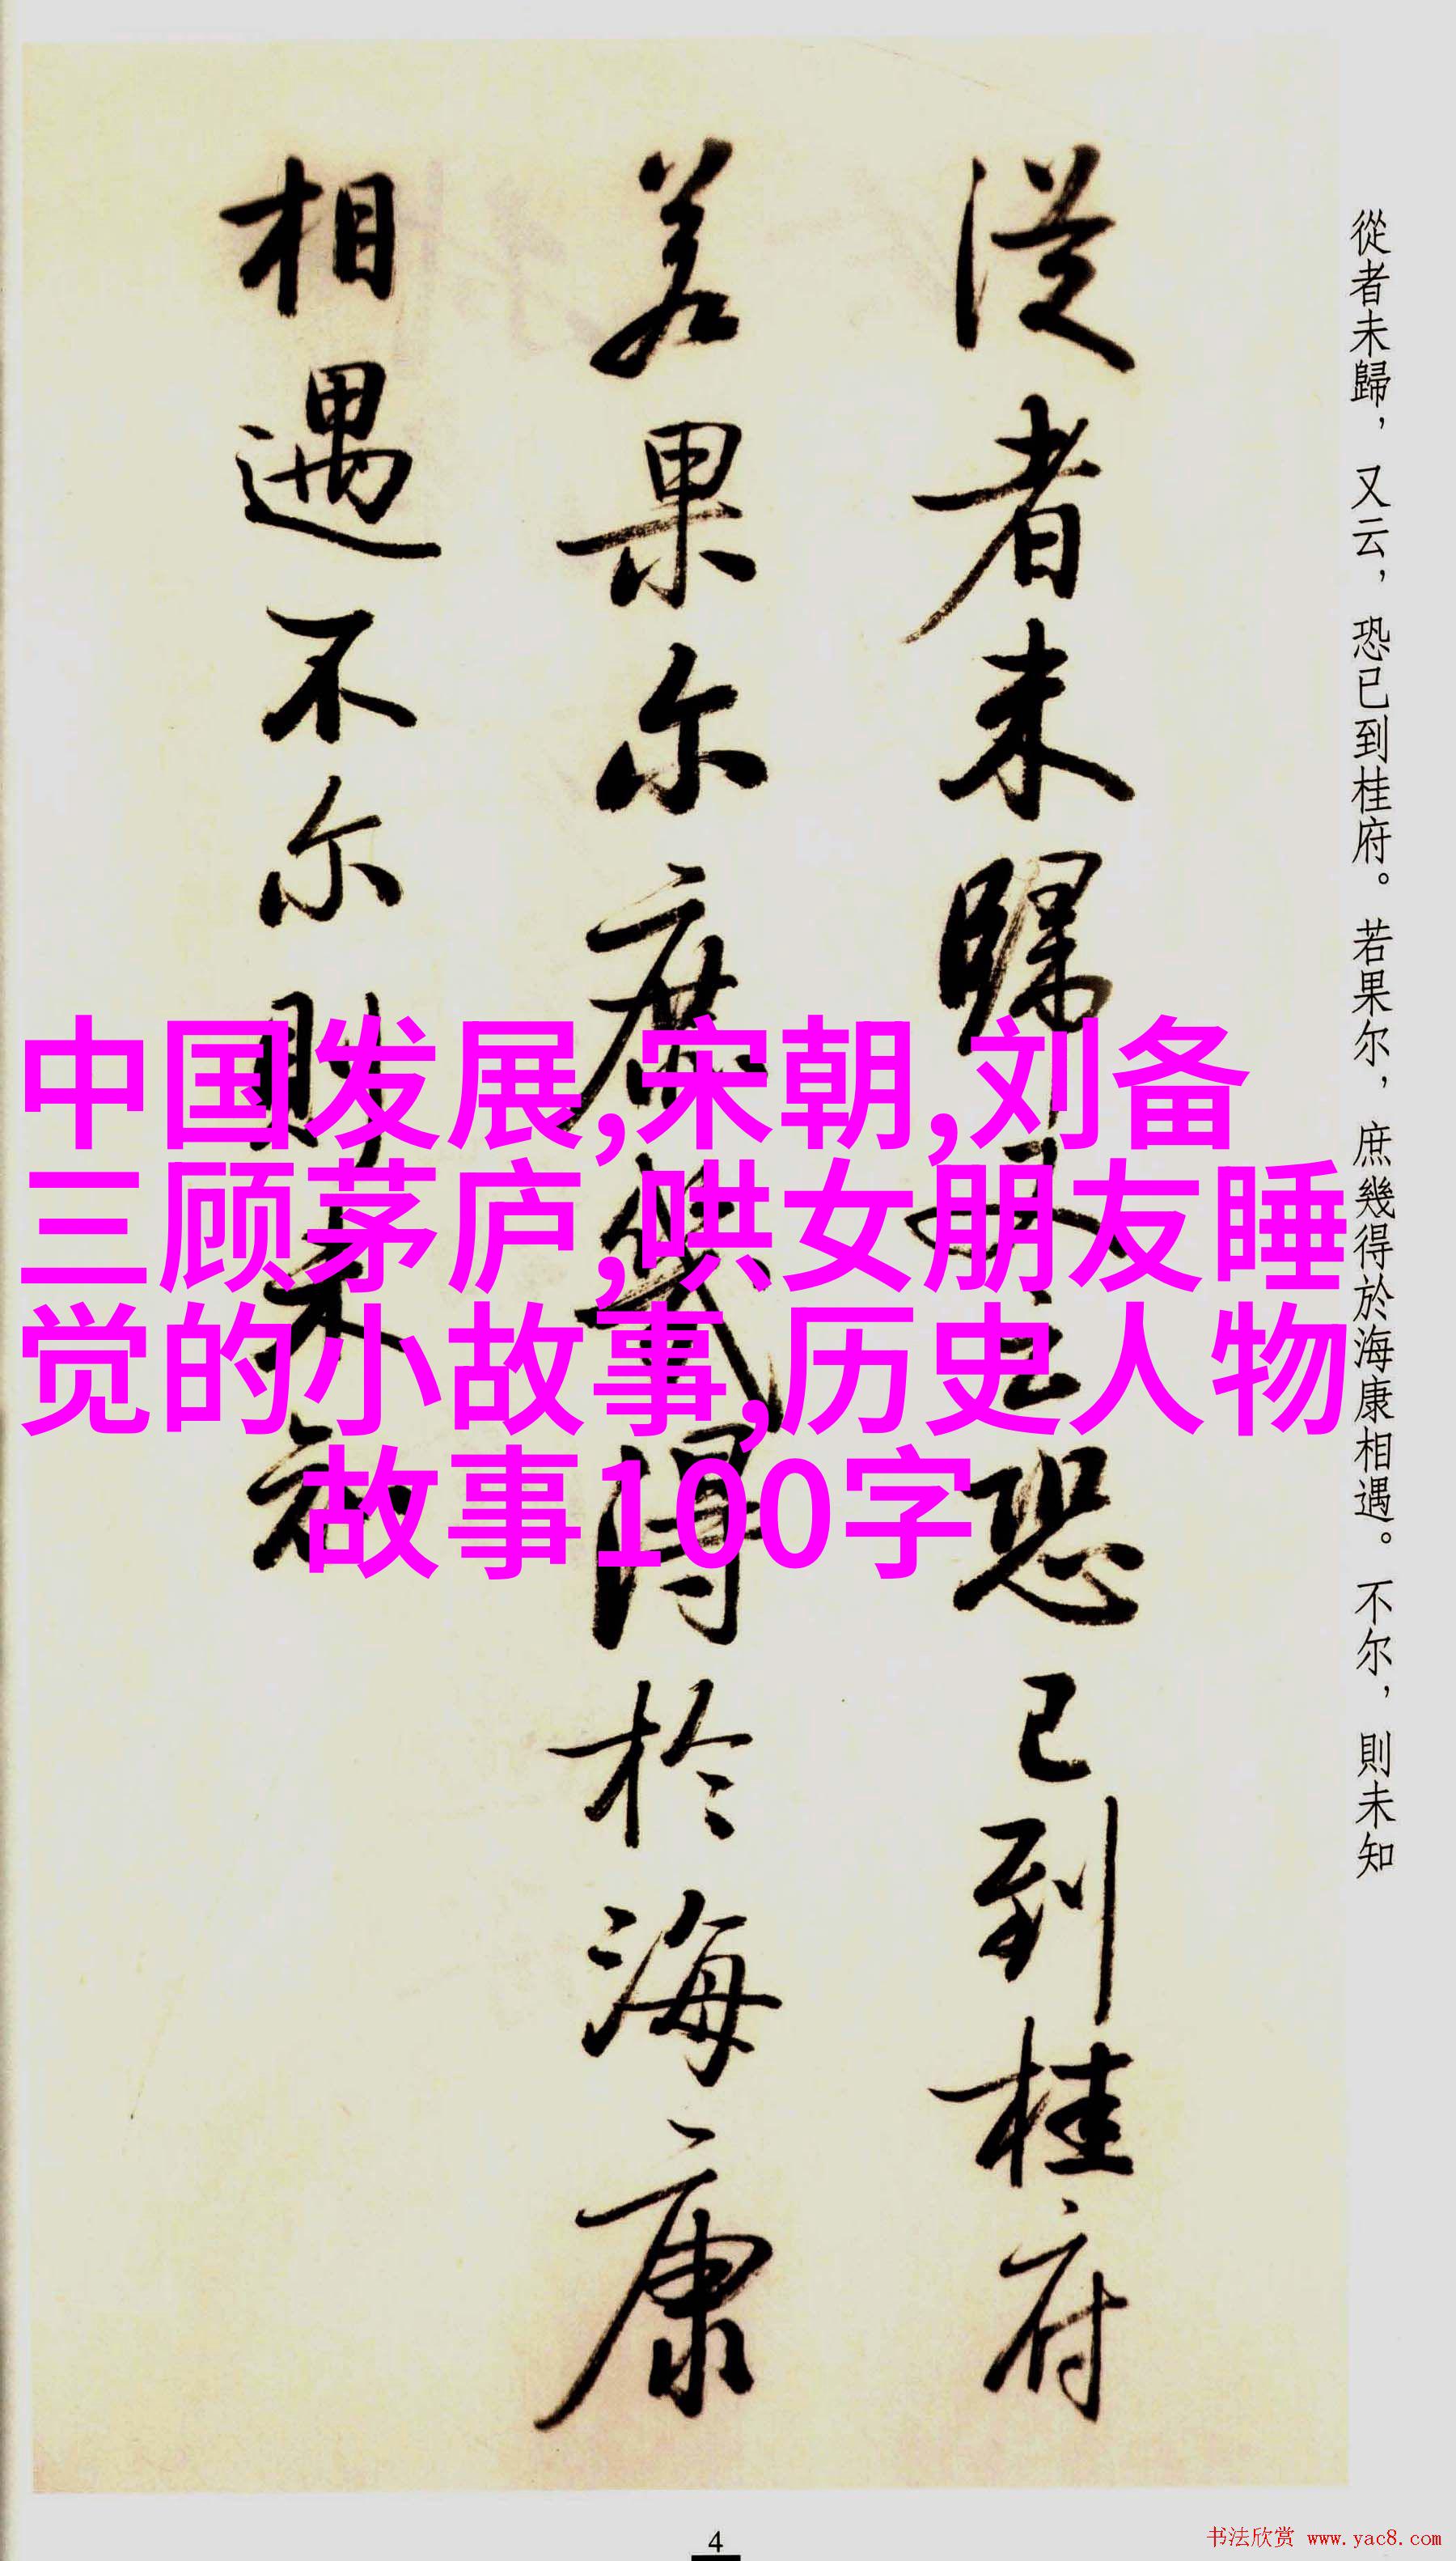 從者未歸，又云，恐已到桂府。若果尔，庶幾得於海康相遇。不尔，則未知
从者未歸又云恐已到桂府
若果尔庶幾得於海康
相遇不尔則未知
中国发展,宋朝,刘备
三顾茅庐,哄女朋友睡
觉的小故事,历史人物
故事100字
4
书法欣赏 www.yac8.com